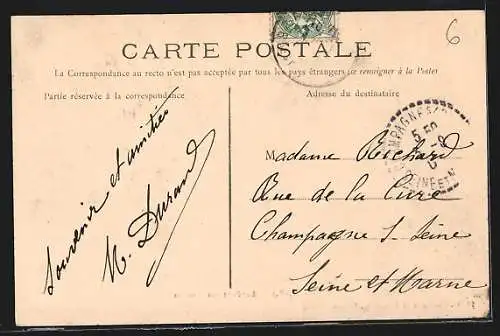 6
CARTE POSTALE
La Correspondance au recto n'est pas acceptée par tous les pays étrangers (se renseigner à la Poste)
Partie réservée à la correspondance
Adresse du destinataire
Souvenir et amitiés
M. Durand
Madame Richard
Rue de la Cure
Champagne S. Seine
Seine et Marne
5 50